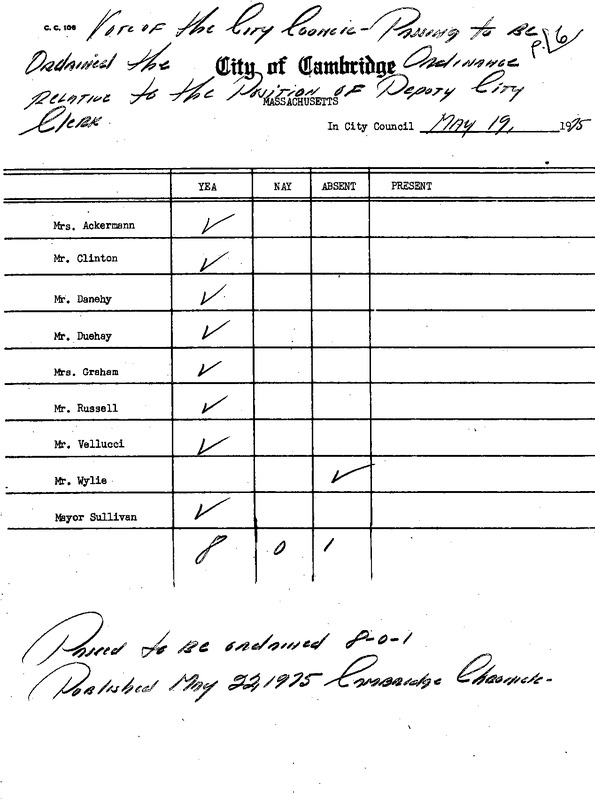 C.C. 106 Vote of the City Council - Passing to be
p. 6
Ordained the City of Cambridge Ordinance
relative to the Position of Deputy City
MASSACHUSETTS
Clerk
In City Council May 19, 1975
YEA NAY ABSENT PRESENT
Mrs. Ackermann ✓
Mr. Clinton ✓
Mr. Danehy ✓
Mr. Duehay ✓
Mrs. Graham ✓
Mr. Russell ✓
Mr. Vellucci ✓
Mr. Wylie ✓
Mayor Sullivan ✓
8 0 1
Passed to be ordained 8-0-1
Published May 22, 1975 Cambridge Chronicle-